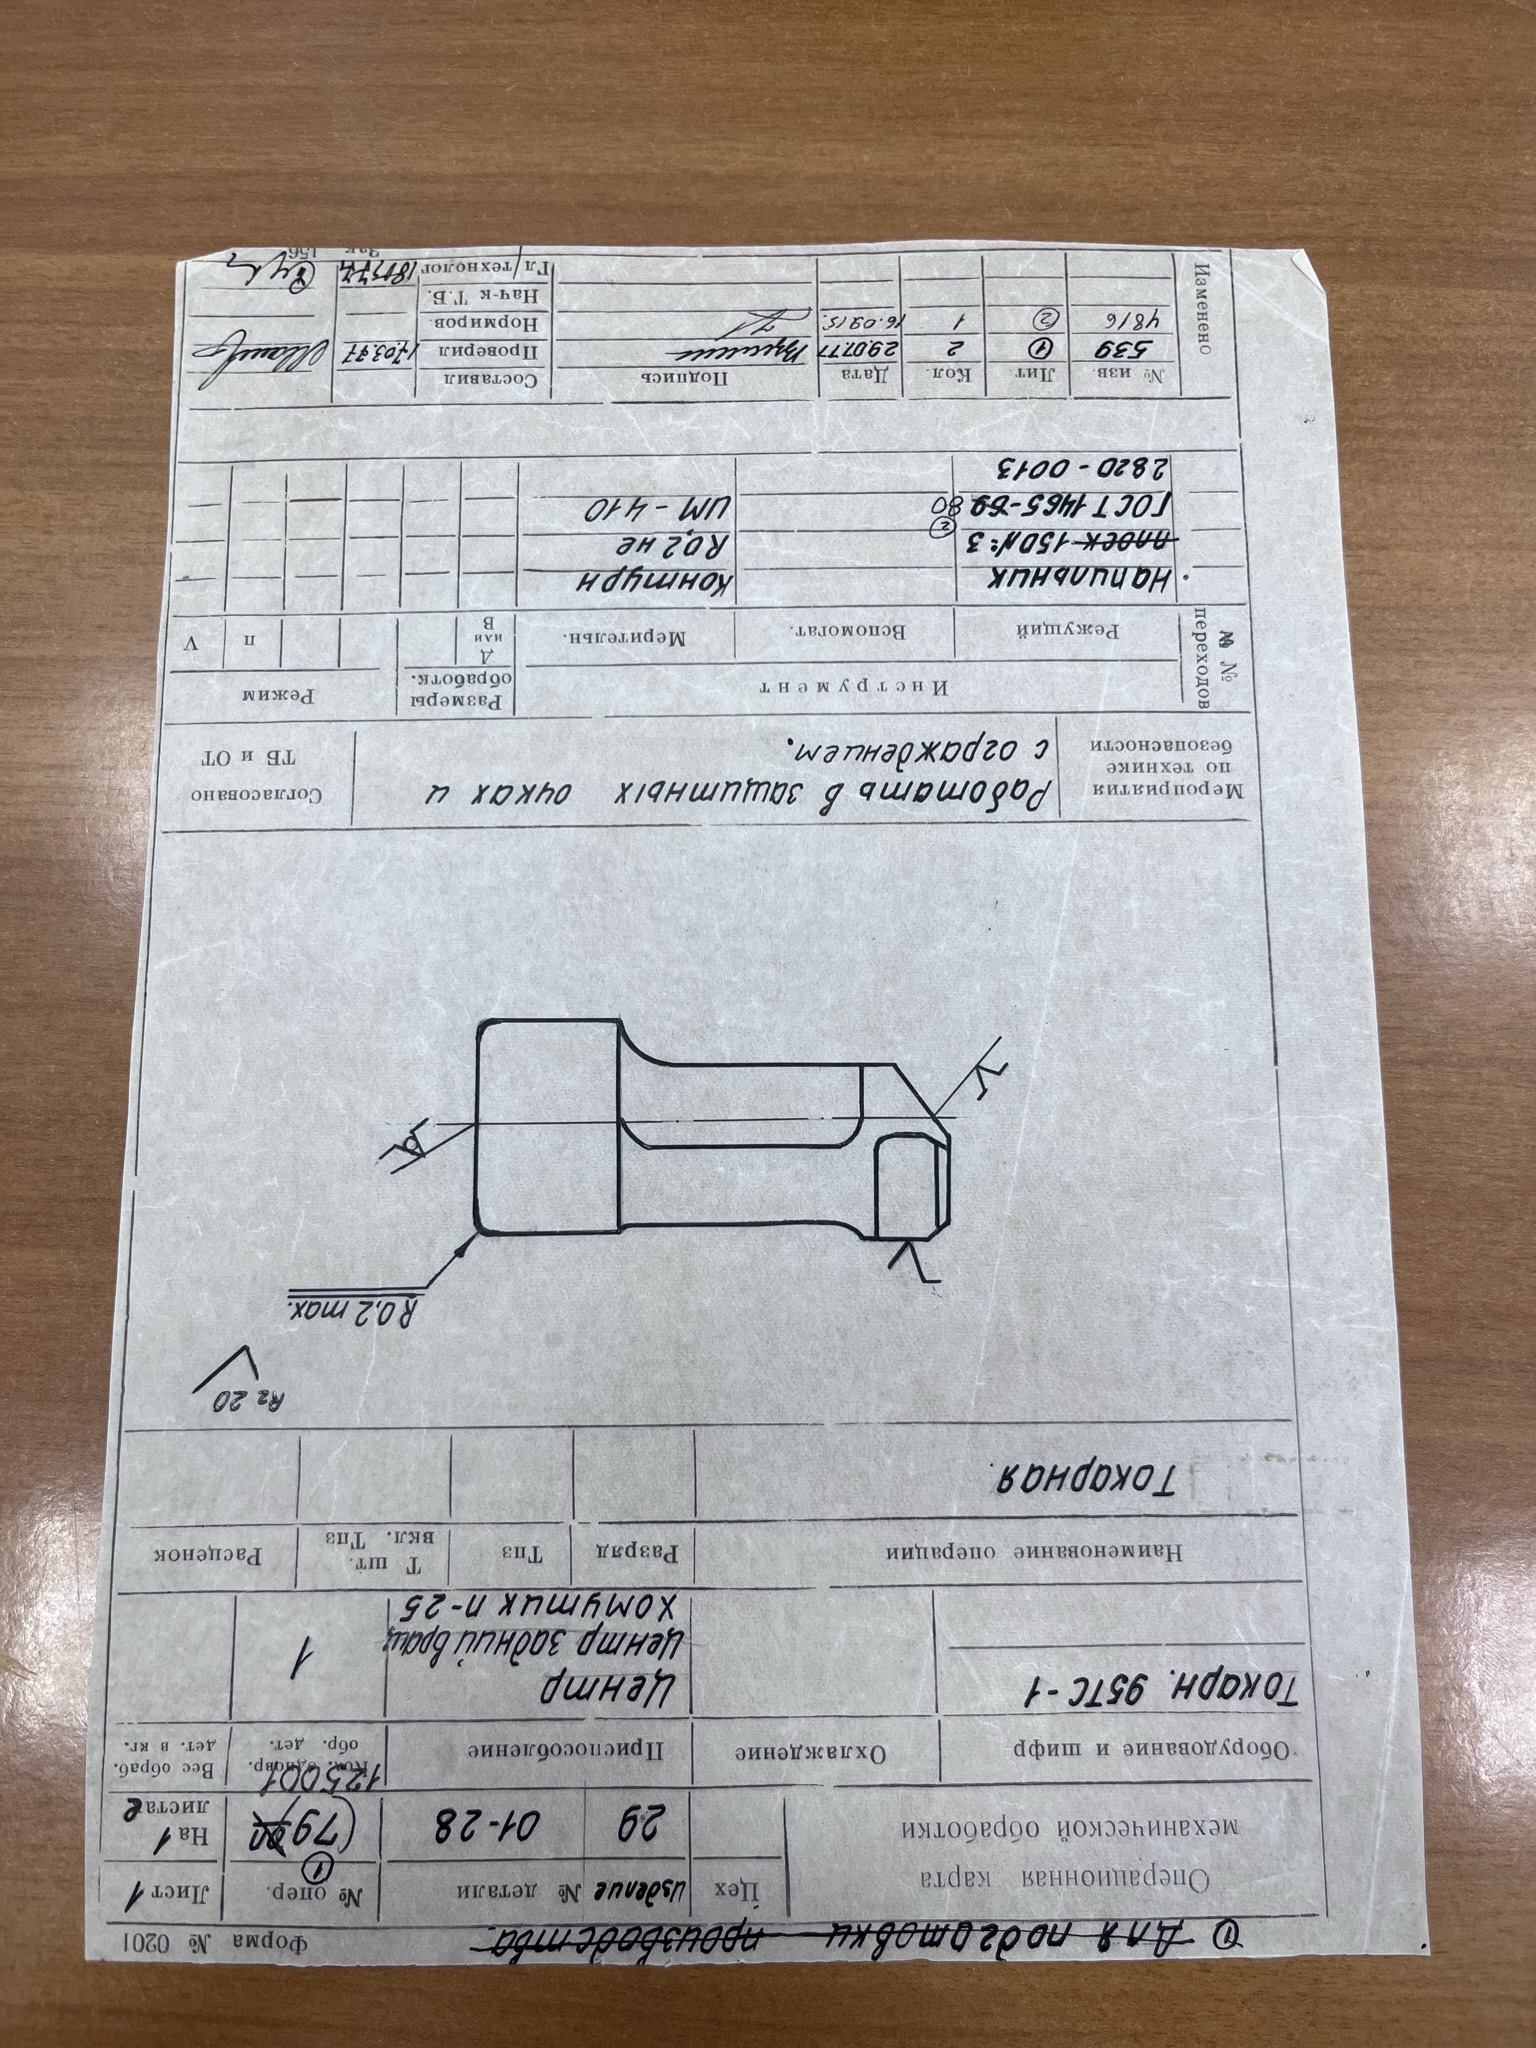 ① Для подготовки производства.
Форма № 0201
Операционная карта
механической обработки
Цех
Изделие
№ детали
№ опер.
Лист 1
①
29
01-28
(79
На 1
листае
125001
Оборудование и шифр
Охлаждение
Приспособление
Кол. одновр.
обр. дет.
Вес обраб.
дет. в кг.
Токарн. 95ТС-1
Центр
Центр задний вращ
Хомутик п-25
1
Наименование операции
Разряд
Тпз
Т шт.
вкл. Тпз
Расценок
Токарная.
Rz 20
R 0,2 max.
Мероприятия
по технике
безопасности
Работать в защитных очках и
с ограждением.
Согласовано
ТБ и ОТ
№ №
переходов
Инструмент
Размеры
обработк.
Режим
Режущий
Вспомогат.
Мерительн.
Д
или
В
п
V
Напильник
Контурн
плоск 150 №3
R 0,2 не
②
ГОСТ 1465-69 80
ИМ-410
2820-0013
Изменено
№ изв.
Лит
Кол.
Дата
Подпись
539
①
2
29.07.77
4816
②
1
16.09.15.
Составил
Проверил 17.03.77
Нормиров.
Нач-к Т.Б.
Гл/технолог
Зак. 156